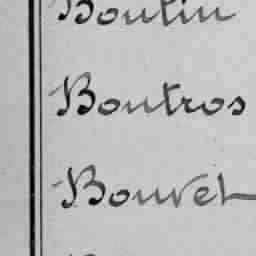 Boutin
Boutros
Bouvet